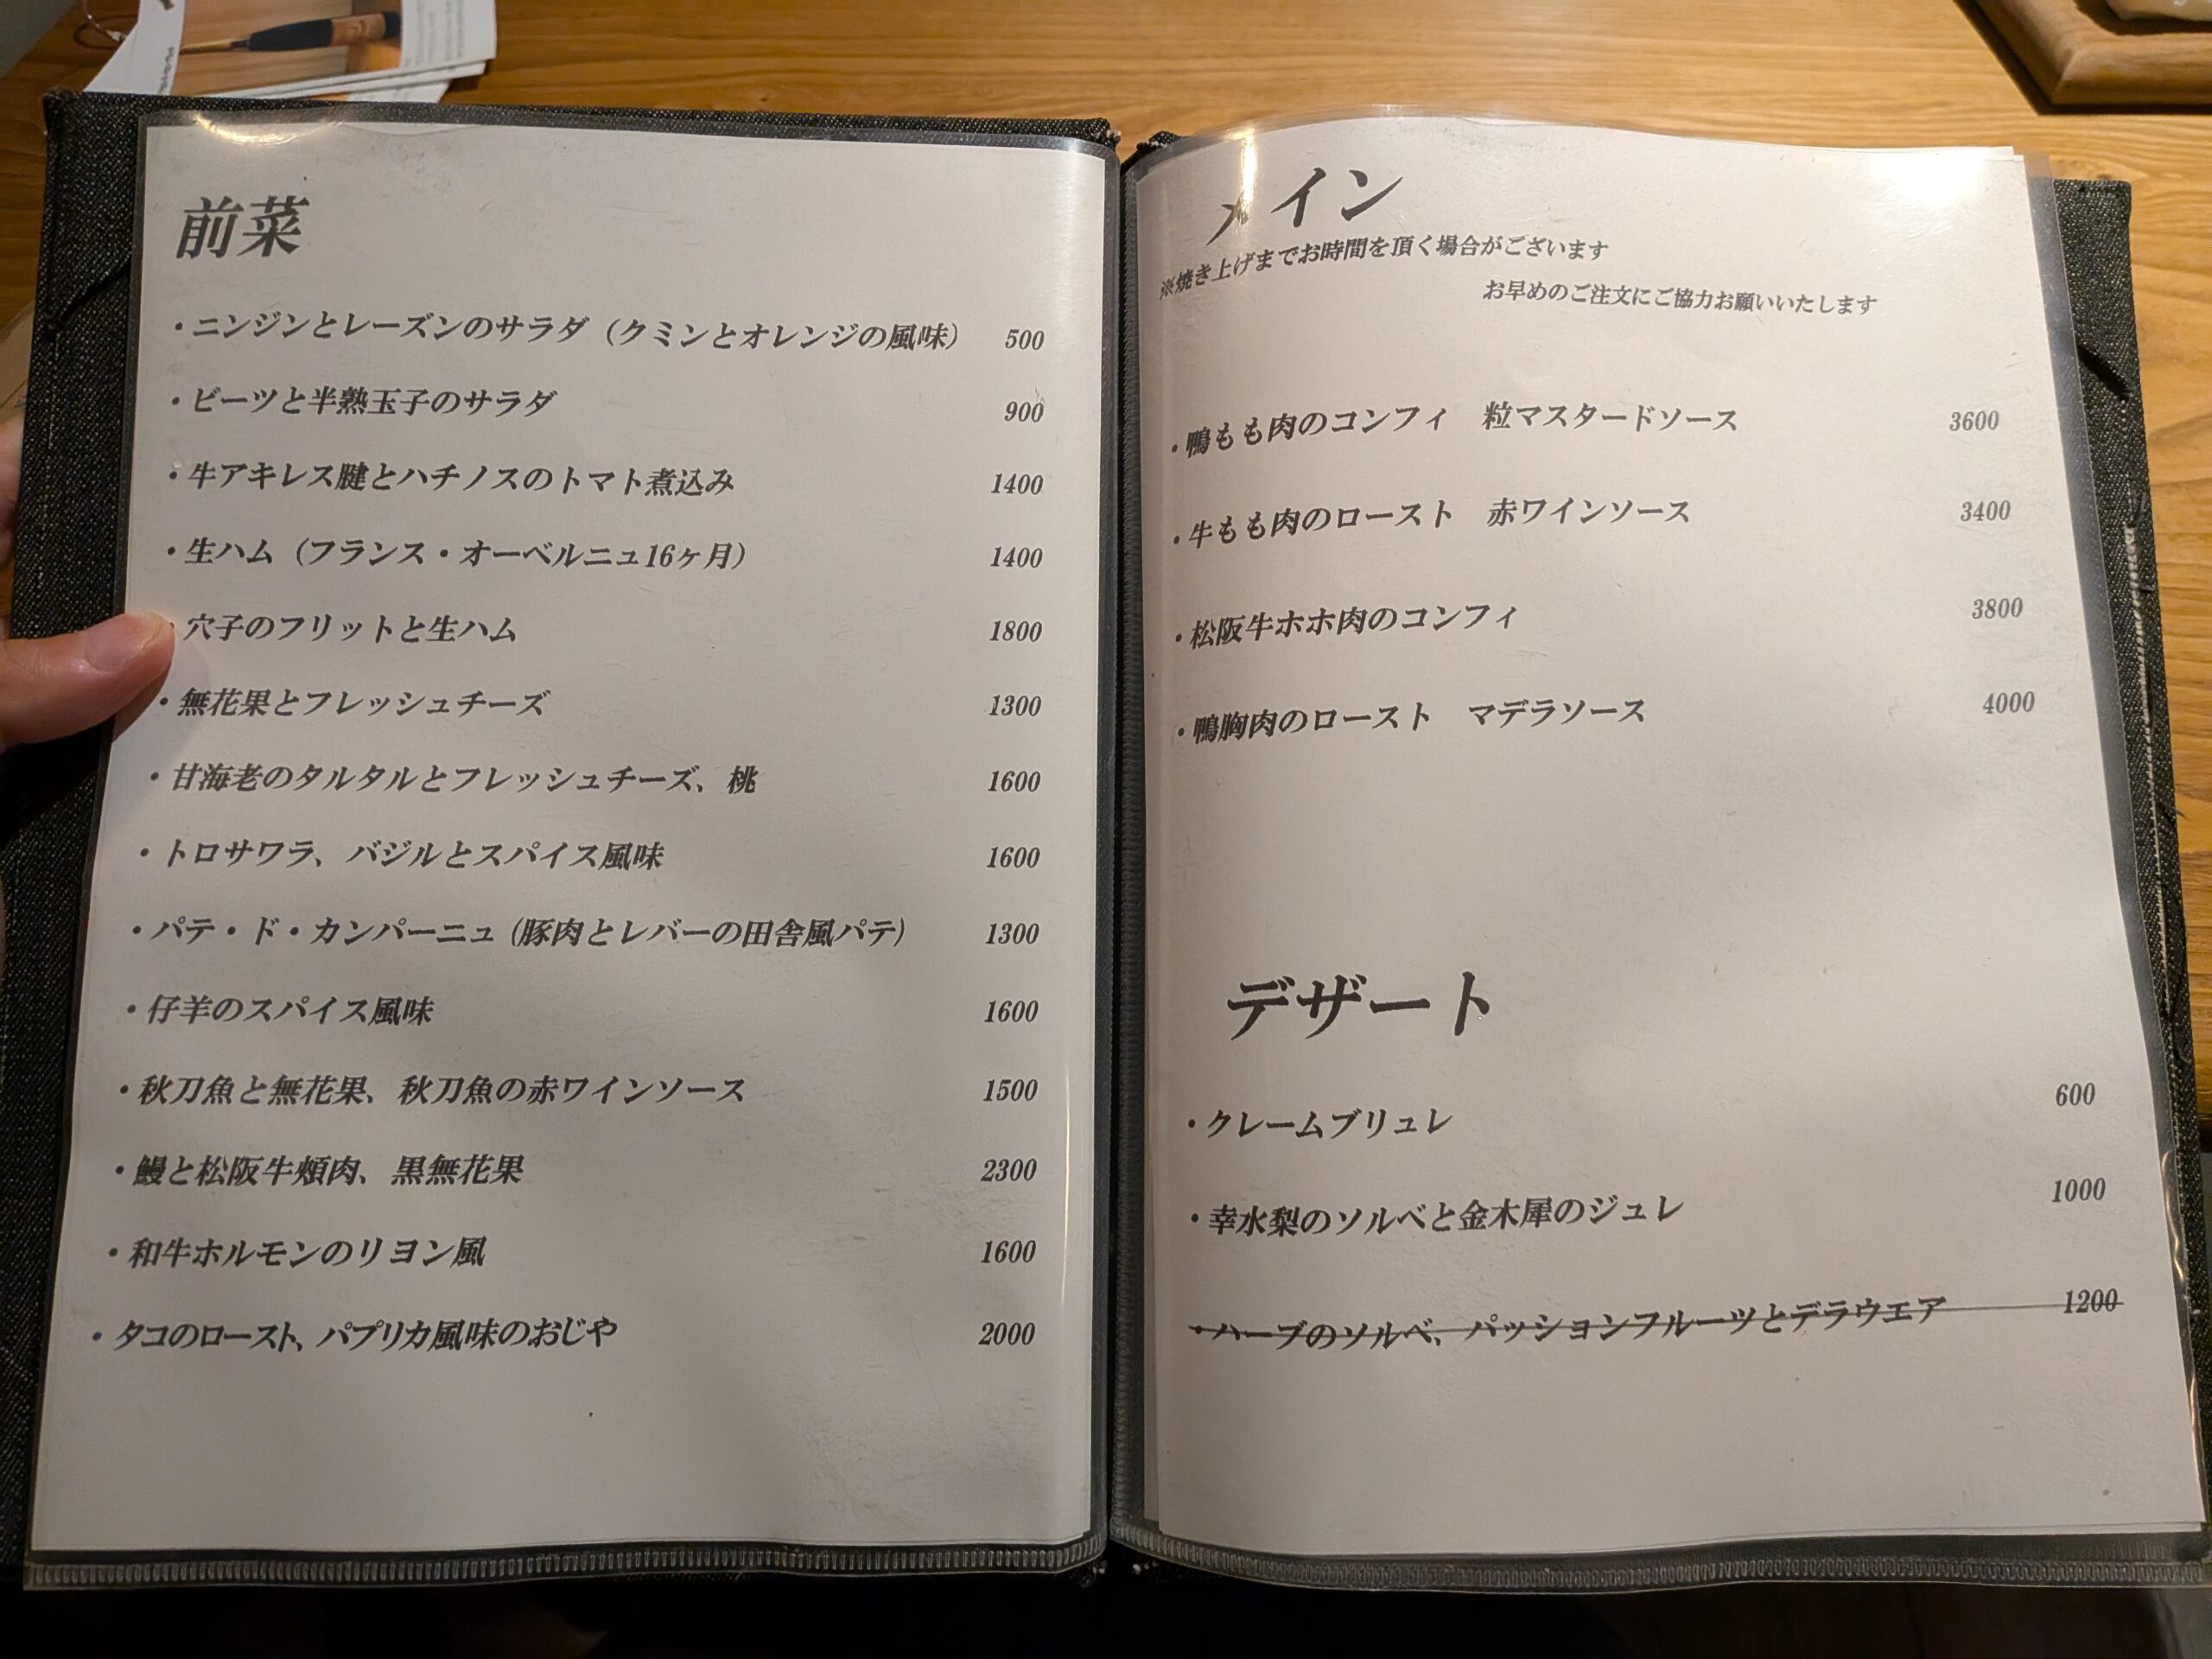 前菜
・ニンジンとレーズンのサラダ（クミンとオレンジの風味） 500
・ビーツと半熟玉子のサラダ 900
・牛アキレス腱とハチノスのトマト煮込み 1400
・生ハム（フランス・オーベルニュ16ヶ月） 1400
・穴子のフリットと生ハム 1800
・無花果とフレッシュチーズ 1300
・甘海老のタルタルとフレッシュチーズ、桃 1600
・トロサワラ、バジルとスパイス風味 1600
・パテ・ド・カンパーニュ（豚肉とレバーの田舎風パテ） 1300
・仔羊のスパイス風味 1600
・秋刀魚と無花果、秋刀魚の赤ワインソース 1500
・鰻と松阪牛頬肉、黒無花果 2300
・和牛ホルモンのリヨン風 1600
・タコのロースト、パプリカ風味のおじや 2000
メイン
※焼き上げまでお時間を頂く場合がございます
お早めのご注文にご協力お願いいたします
・鴨もも肉のコンフィ　粒マスタードソース 3600
・牛もも肉のロースト　赤ワインソース 3400
・松阪牛ホホ肉のコンフィ 3800
・鴨胸肉のロースト　マデラソース 4000
デザート
・クレームブリュレ 600
・幸水梨のソルベと金木犀のジュレ 1000
・ハーブのソルベ、パッションフルーツとデラウエア 1200